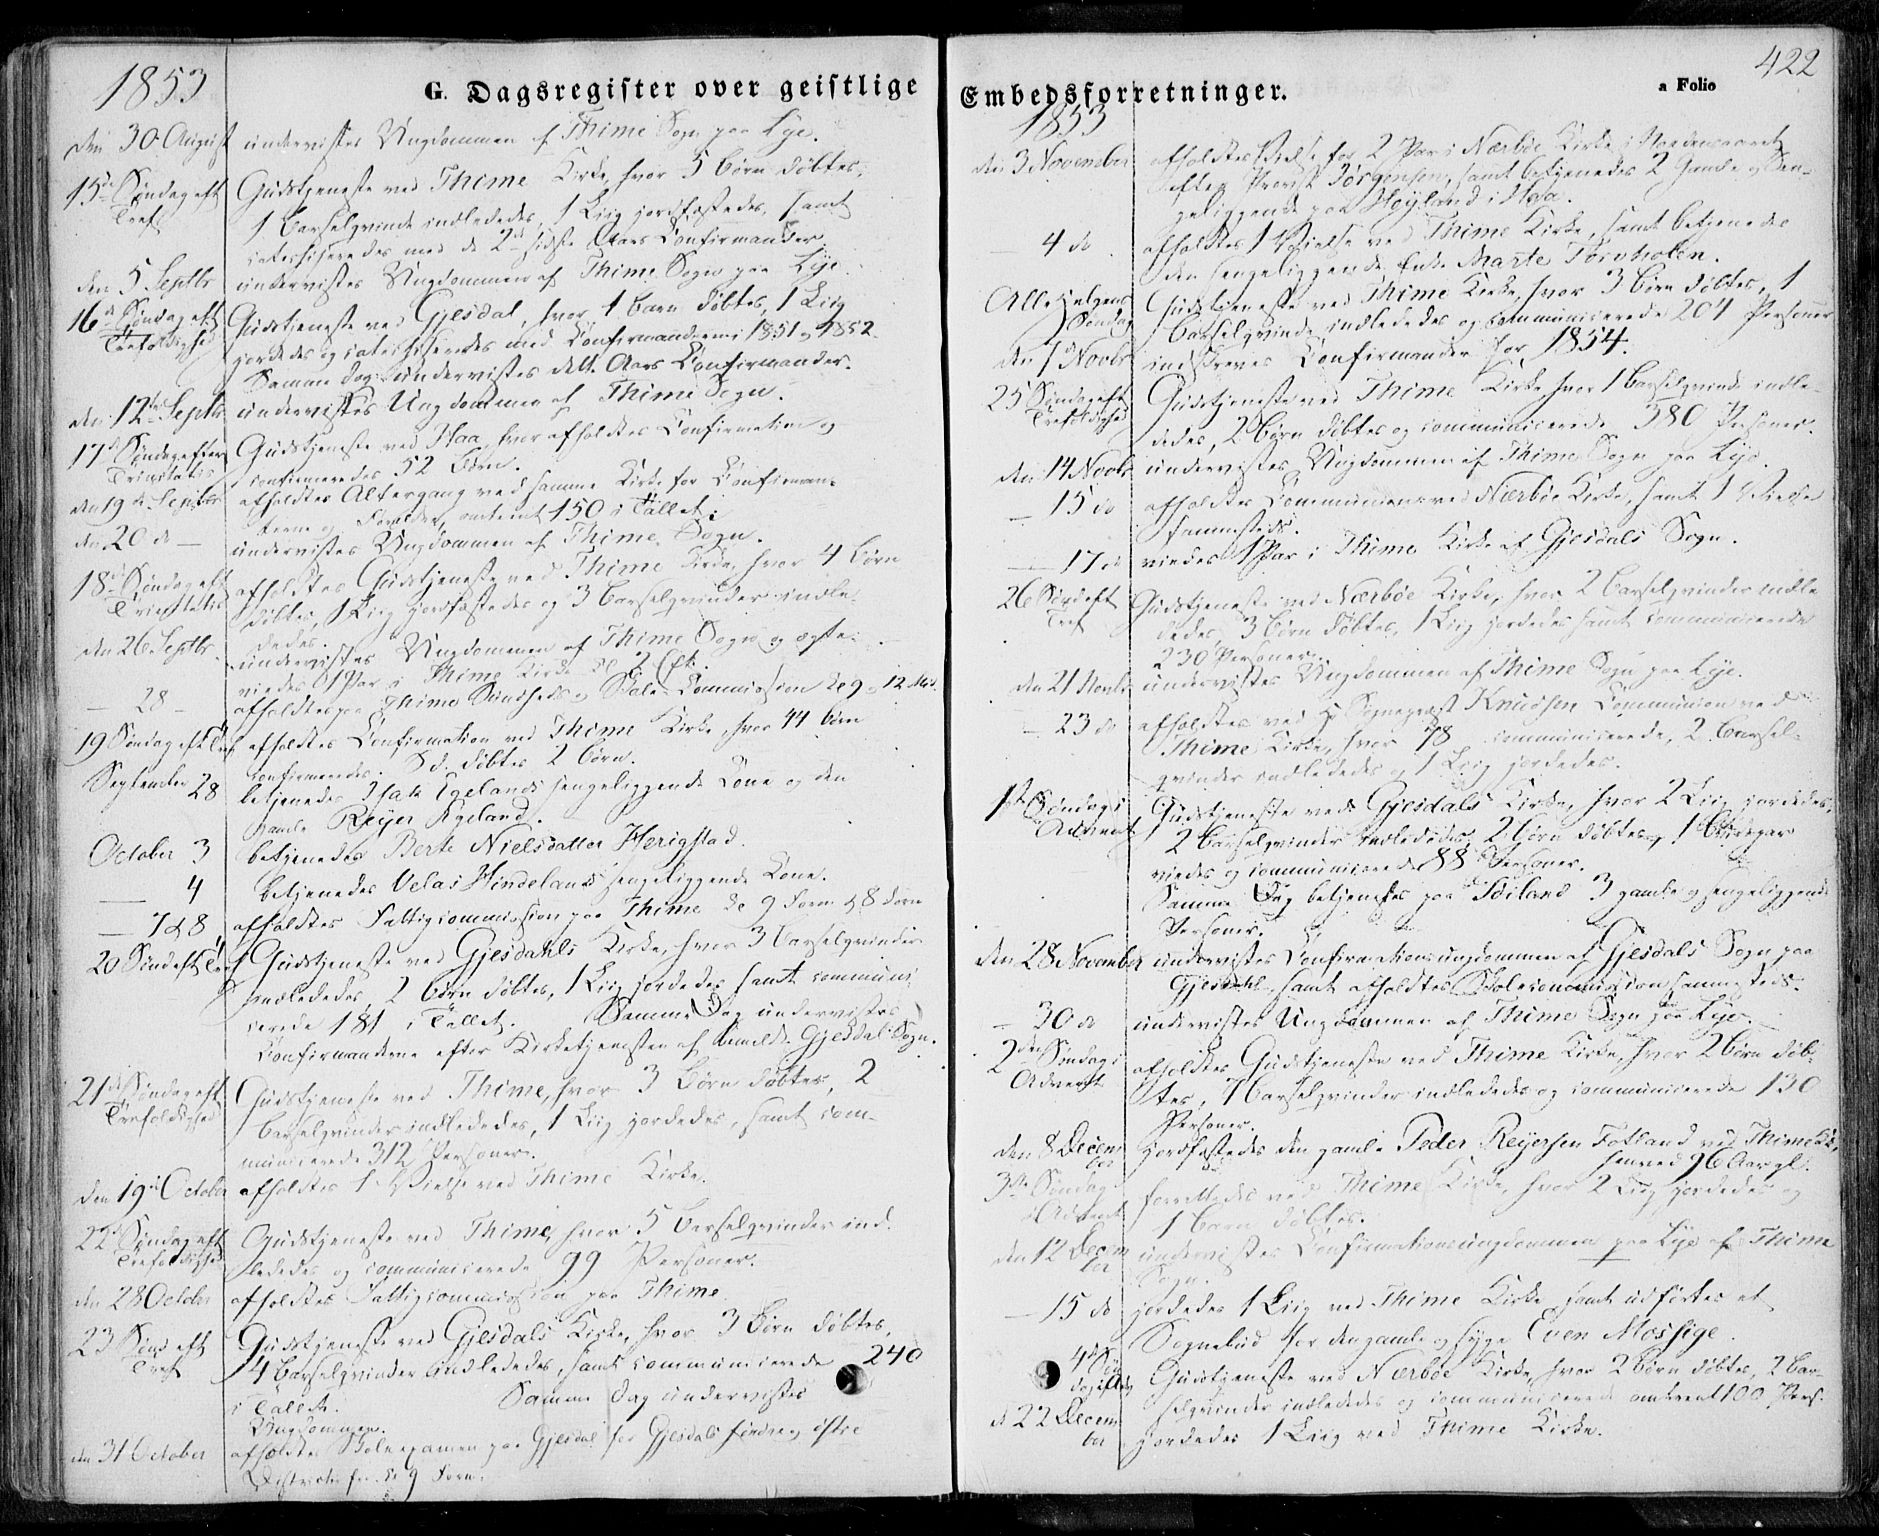 1853
G. Dagsregister over geistlige
den 30 August undervistes Ungdommen af Thime Sogn paa Lye.
15de Søndag eft Gudstjeneste ved Thime Kirke, hvor 5 Børn døbtes,
Tref 1 Barselqvinde indlededes, 1 Liig jordfæstedes, samt
catechiseredes med de 2de sidste Aars Confirmander.
den 5 Septbr undervistes Ungdommen af Thime Sogn paa Lye.
16d Søndag eft Gudstjeneste ved Gjesdal, hvor 1 barn døbtes, 1 Liig
Trefoldighed jordedes og catechiseredes med Confirmanderne 1851 og 1852.
Samme Dag undervistes dette Aars Confirmander.
den 12te Septbr undervistes Ungdommen af Thime Sogn.
17d Søndag efter Gudstjeneste ved Haa, hvor afholdtes Confirmation og
Trinitatis confirmeredes 52 Børn.
den 19de Septbr afholdtes Altergang ved samme Kirke for Confirman-
terne og Forældre, omtrent 150 i Tallet.
den 20 do undervistes Ungdommen af Thime Sogn.
18d Søndag eft afholdtes Gudstjeneste ved Thime Kirke, hvor 4 Børn
Trinitatis døbtes, 1 Liig jordfæstedes og 3 Barselqvinder indle-
dedes.
den 26 Septbr undervistes Ungdommen af Thime Sogn og egte-
viedes 1 Par i Thime Kirke
28 afholdtes paa Thime Sundheds og Skole Commission
19 Søndag eft Tref afholdtes Confirmation ved Thime Kirke, hvor 44 børn
confirmeredes. S.d. døbtes 2 børn.
September 28 betjenedes Egelands sengeliggende Kone og den
gamle Reyer Egeland.
October 3 betjenedes Berte Nielsdatter Herigstad.
4 betjenedes Velas Hindelands sengeliggende Kone.
7 & 8 afholdtes Fattigcommission paa Thime
20 Sønd eft Tref Gudstjeneste ved Gjesdahls Kirke, hvor 3 Barselqvinder
indlededes, 2 børn døbtes, 1 Liig jordedes samt communi
cerede 181 i Tallet. Samme Dag undervistes
Confirmanderne efter Kirketjenesten af Gjesdal Sogn.
21d Søndag eft Gudstjeneste ved Thime, hvor 3 Børn døbtes, 2
Trefoldighed Barselqvinder indlededes, 1 Liig jordedes, samt com-
municerede 312 Personer.
den 19d October afholdtes 1 Vielse ved Thime Kirke.
22d Søndag eft Gudstjeneste ved Thime, hvor 5 Barselqvinder ind-
Trefoldighed lededes og communicerede 99 Personer.
den 28 October afholdtes Fattigcommission paa Thime
23 Sønd eft Gudstjeneste ved Gjesdals Kirke, hvor 3 Børn døbtes,
Tref 4 Barselqvinder indlededes, samt communicerede 240
i Tallet. Samme Dag undervistes
Ungdommen.
den 31 October afholdtes Skoleexamen paa Gjesdal for Gjesdals søndre og østre
422
Embedsforretninger. a Folio
1853
den 3 November afholdtes Vielse for 2 Par i Nærbøe Kirke i
efter Provst Jørgensen, samt betjenedes 2 Gamle og Sen-
geliggende paa Høyland i Haa.
4 do afholdtes 1 Vielse ved Thime Kirke, samt betjenedes
den sengeliggende Enke Marte Tornholen.
Alle Helgens Gudstjeneste ved Thime Kirke, hvor 3 Børn døbtes, 1
Søndag Barselqvinde indlededes og communicerede 204 Personer
den 7 Novbr indskreves Confirmander for 1854.
25 Søndag eft Gudstjeneste ved Thime Kirke, hvor 1 Barselqvinde indle-
Trefoldighed dedes, 2 Børn døbtes og communicerede 380 Personer.
den 14 Novbr undervistes Ungdommen af Thime Sogn paa Lye.
15 do afholdtes Communion ved Nærbøe Kirke, samt 1 Vielse
sammesteds.
17 do viedes 1 Par i Thime Kirke af Gjesdals Sogn.
26 Sønd eft Gudstjeneste ved Nærbøe Kirke, hvor 2 barselqvinder indle
Tref dedes, 3 Børn døbtes, 1 Liig jordedes samt communicerede
230 Personer.
den 21 Novbr undervistes Ungdommen af Thime Sogn paa Lye.
23 do afholdtes ved Hr Sognepræst Knudsen Communion ved
Thime Kirke, hvor 78 communicerede, 2 Barsel-
qvinder indlededes og 1 Liig jordedes.
1ste Søndag i Gudstjeneste ved Gjesdals Kirke, hvor 2 Liig jordedes,
Advent 2 Barselqvinder indlededes, 2 børn døbtes, 1 Brudepar
viedes og communicerede 88 Personer.
Samme Dag betjentes paa 3 gamle og sengeliggende
Personer.
den 28 November undervistes Confirmationsungdommen af Gjesdals Sogn paa
Gjesdahl samt afholdtes Skolecommission sammesteds.
30 do undervistes Ungdommen af Thime Sogn paa Lye.
2den Søndag i afholdtes Gudstjeneste ved Thime Kirke, hvor 2 Børn døb-
Advent tes, 7 Barselqvinder indlededes og communicerede 130
Personer.
den 8 Decem jordfæstedes den gamle Peder Reyersen Fotland ved Thime K.,
ber henved 96 Aar gl.
3die Søndag forrettedes ved Thime Kirke, hvor 2 Liig jordedes og
i Advent 1 Barn døbtes.
den 12 Decem undervistes Confirmationsungdommen paa Lye af Thime
ber Sogn.
15 do jordedes 1 Liig ved Thime Kirke samt udførtes et
Sognebud for den gamle og syge Even Mossige.
4d Søn Gudstjeneste ved Nærbøe Kirke, hvor 2 Børn døbtes, 2 Bar-
dag i Adv selqvinder indlededes og communicerede omtrent 100 Pers.
d 22 Decem jordedes 1 Liig ved Thime Kirke.
ber